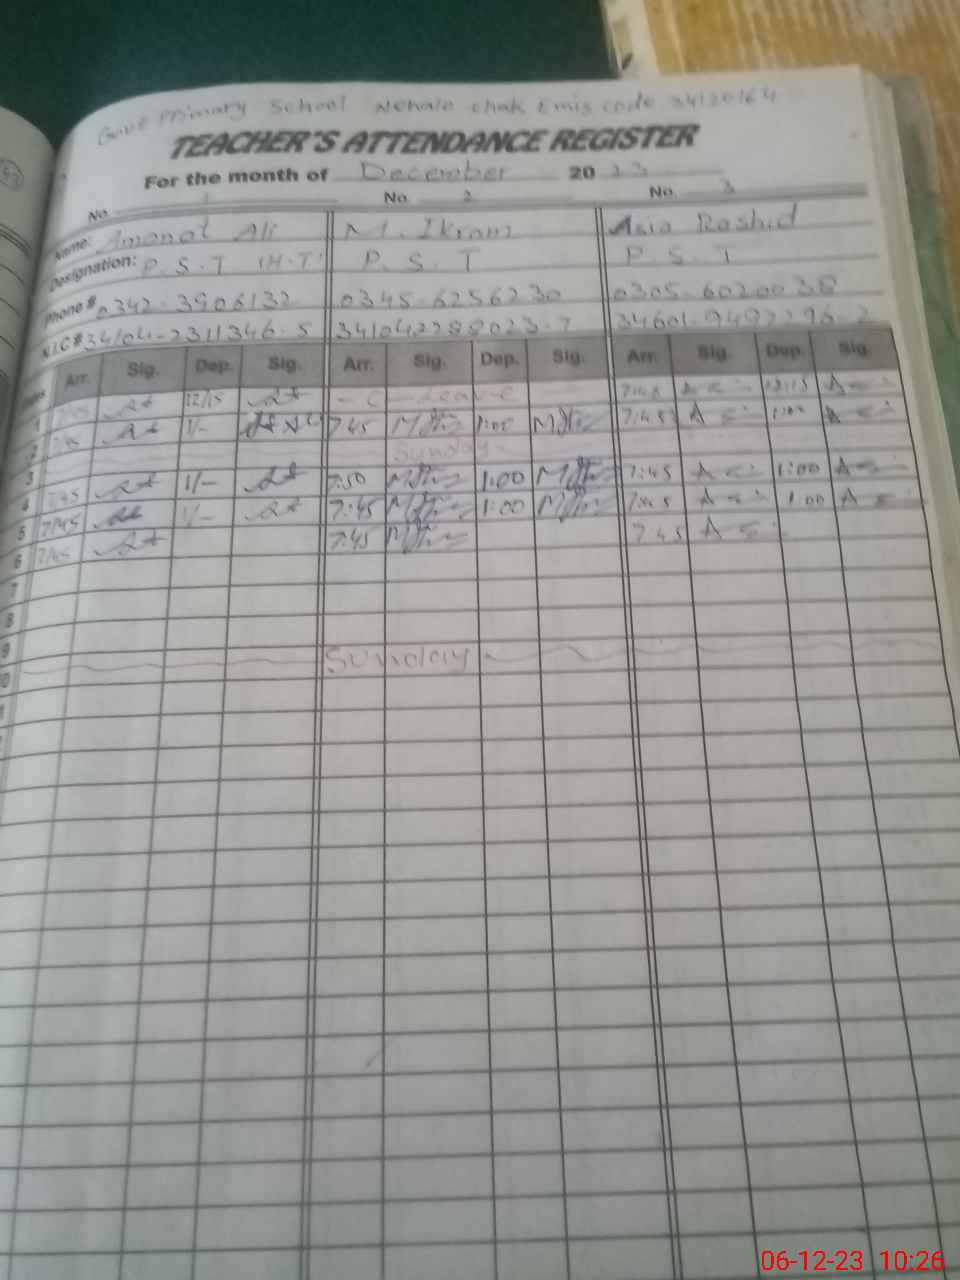 Govt Primary School Nehale chak Emis code 34120164
TEACHER'S ATTENDANCE REGISTER
For the month of December 20 23
No. 1 No. 2 No. 3
Name: Amanat Ali M. Ikram Asia Rashid
Designation: P.S.T (H.T) P.S.T P.S.T
Phone # 0342-3906132 0345-6256230 0305-6020038
N.I.C # 34104-2311346-5 341042788023-7 34601-9497296-2
Arr. Sig. Dep. Sig. Arr. Sig. Dep. Sig. Arr. Sig. Dep. Sig.
1 7/45 12/15 - C - Leave 7:45 12:15
2 7/45 1/- 7:45 1:00 7:45 1:00
3 Sunday
4 7/45 1/- 7:50 1:00 7:45 1:00
5 7/45 1/- 7:45 1:00 7:45 1:00
6 7/45 7:45 7:45
7
8
9
0 Sunday
06-12-23 10:26